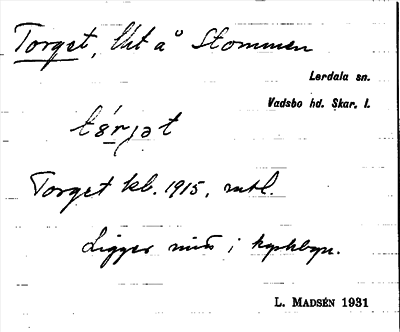 Torget, Urt å Stommen
Lerdala sn.
Vadsbo hd. Skar. l.
Torget kb. 1915, mtl.
Ligger i kyrkbyn.
L. MADSÉN 1931